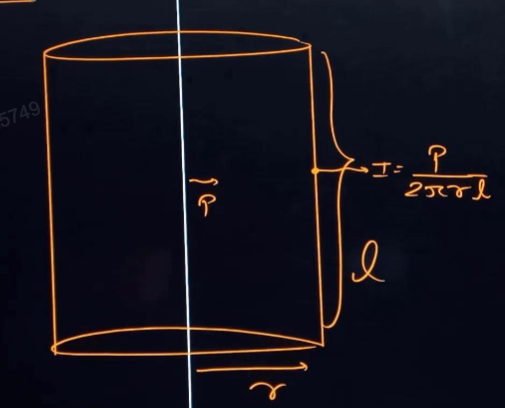 5749
P
I = P / 2πrl
l
r